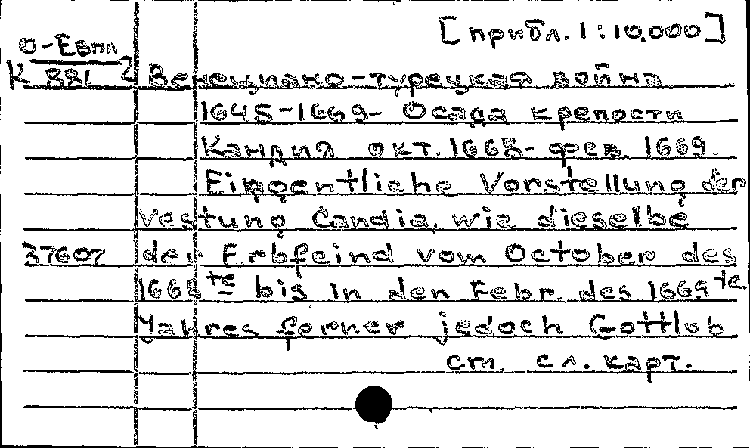 [прибл. 1:10.000]
О-Евпл
К 881 2
Венециано-турецкая война
1645-1669- Осада крепости
Кандия окт. 1668- фев. 1669.
Eigentliche Vorstellung der
Vestung Candia, wie dieselbe
37607 der Erbfeind vom October des
1668te bis in den Febr. des 1669te
Jahres ferner jedoch Gottlob
см. сл. карт.